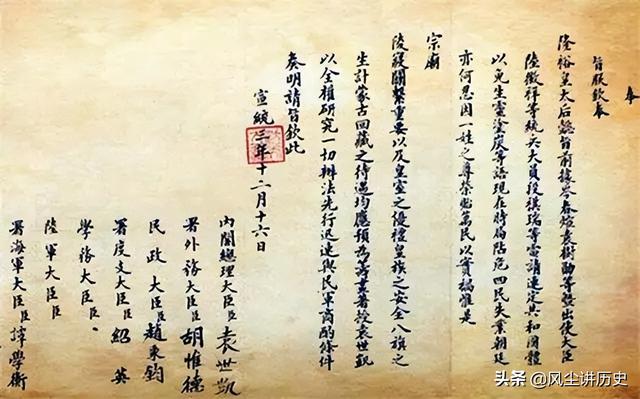 奉
旨朕欽奉
隆裕皇太后懿旨前據岑春煊袁樹勳等暨出使大臣
陸徵祥等統兵大員段祺瑞等電請速定共和國體
以免生靈塗炭等語現在時局阽危四民失業朝廷
亦何忍因一姓之尊榮貽萬民以實禍惟是
宗廟
陵寢關繫重要以及皇室之優禮皇族之安全八旗之
生計蒙古回藏之待遇均應預為籌畫著授袁世凱
以全權研究一切辦法先行迅速與民軍商酌條件
奏明請旨欽此
宣統三年十二月十六日
內閣總理大臣臣袁世凱
署外務大臣臣胡惟德
民政大臣臣趙秉鈞
署度支大臣臣紹英
學務大臣臣
陸軍大臣臣
署海軍大臣臣譚學衡
头条 @风尘讲历史